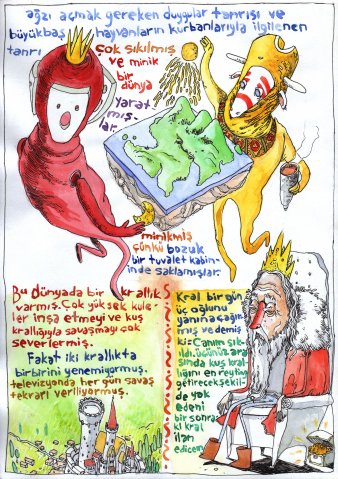 ağzı açmak gereken duygular tanrısı ve
büyükbaş hayvanların kurbanlarıyla ilgilenen
tanrı
çok sıkılmış
ve minik
bir
dünya
yarat
mış-
lar.
minikmiş
çünkü bozuk
bir tuvalet kabin-
inde saklamışlar.
Bu dünyada bir krallık
varmış. Çok yüksek kule-
ler inşa etmeyi ve kuş
krallığıyla savaşmayı çok
severlermiş.
Fakat iki krallıkta
birbirini yenemiyormuş.
televizyonda her gün savaş
tekrarı veriliyormuş.
Kral bir gün
üç oğlunu
yanına çağır
mış ve demiş
ki= Canım sık-
ıldı. üçünüz ara
sında kuş kral-
lığını en reyting
getirecek şekil-
de yok
edeni
bir sonra
ki kral
ilan
edicem